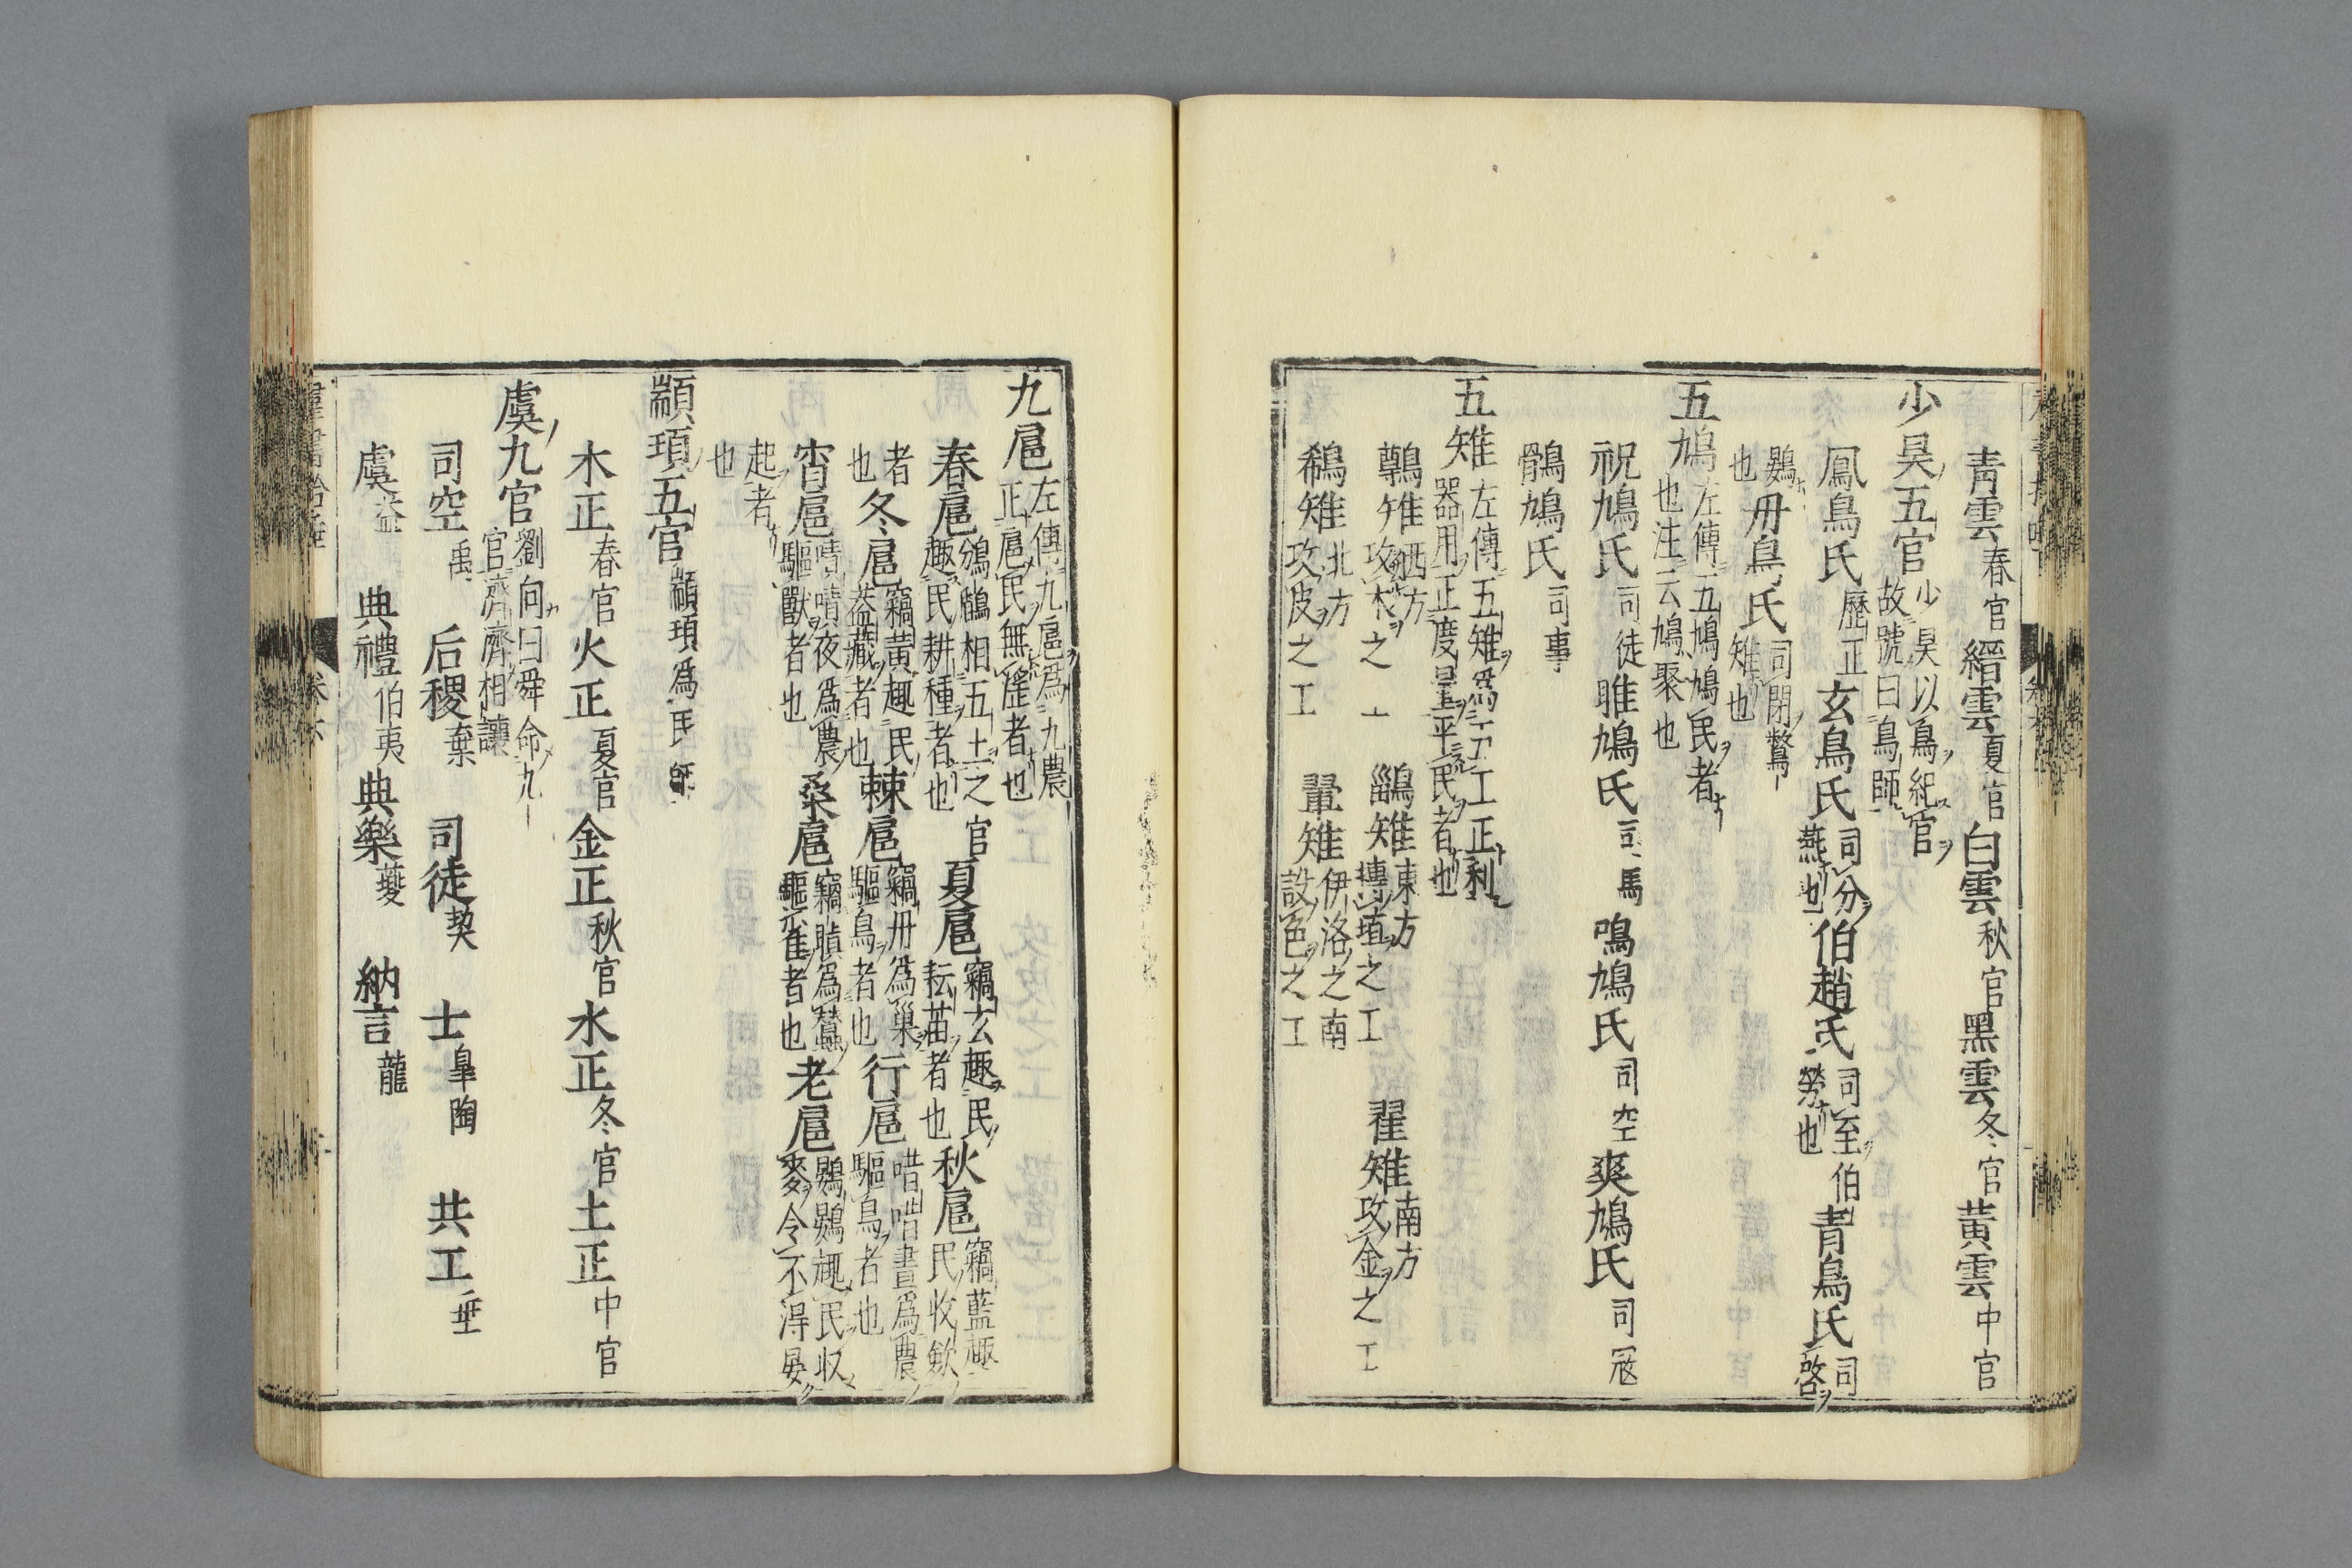 青雲春官縉雲夏官白雲秋官黑雲冬官黃雲中官
少昊五官少昊以鳥紀官故號曰鳥師
鳳鳥氏歷正玄鳥氏司分燕也伯趙氏司至伯勞也青鳥氏司啓
鷃也丹鳥氏司閉鷩雉也
五鳩左傳五鳩鳩民者也注云鳩聚也
祝鳩氏司徒雎鳩氏司馬鳴鳩氏司空爽鳩氏司寇
鶻鳩氏司事
五雉左傳五雉爲五工正利器用正度量平民者也
鷷雉西方攻木之工 鶅雉東方摶埴之工 翟雉南方攻金之工
鵗雉北方攻皮之工 翬雉伊洛之南設色之工
九扈左傳九扈爲九農正扈民無滛者也
春扈鳻鶞相五土之官趣民耕種者也夏扈竊玄趣民耘苗者也秋扈竊藍趣民收斂
者也冬扈竊黃趣民蓋藏者也棘扈竊丹爲巢驅鳥者也行扈唶唶晝爲農驅鳥者也
宵扈嘖嘖夜爲農驅獸者也桑扈竊脂爲蠶驅雀者也老扈鷃鷃趣民収麥令不得晏
起者也
顓頊五官顓頊爲民師
木正春官火正夏官金正秋官水正冬官土正中官
虞九官劉向曰舜命九官濟濟相讓
司空禹 后稷棄 司徒契 士臯陶 共工垂
虞益 典禮伯夷典樂夔 納言龍